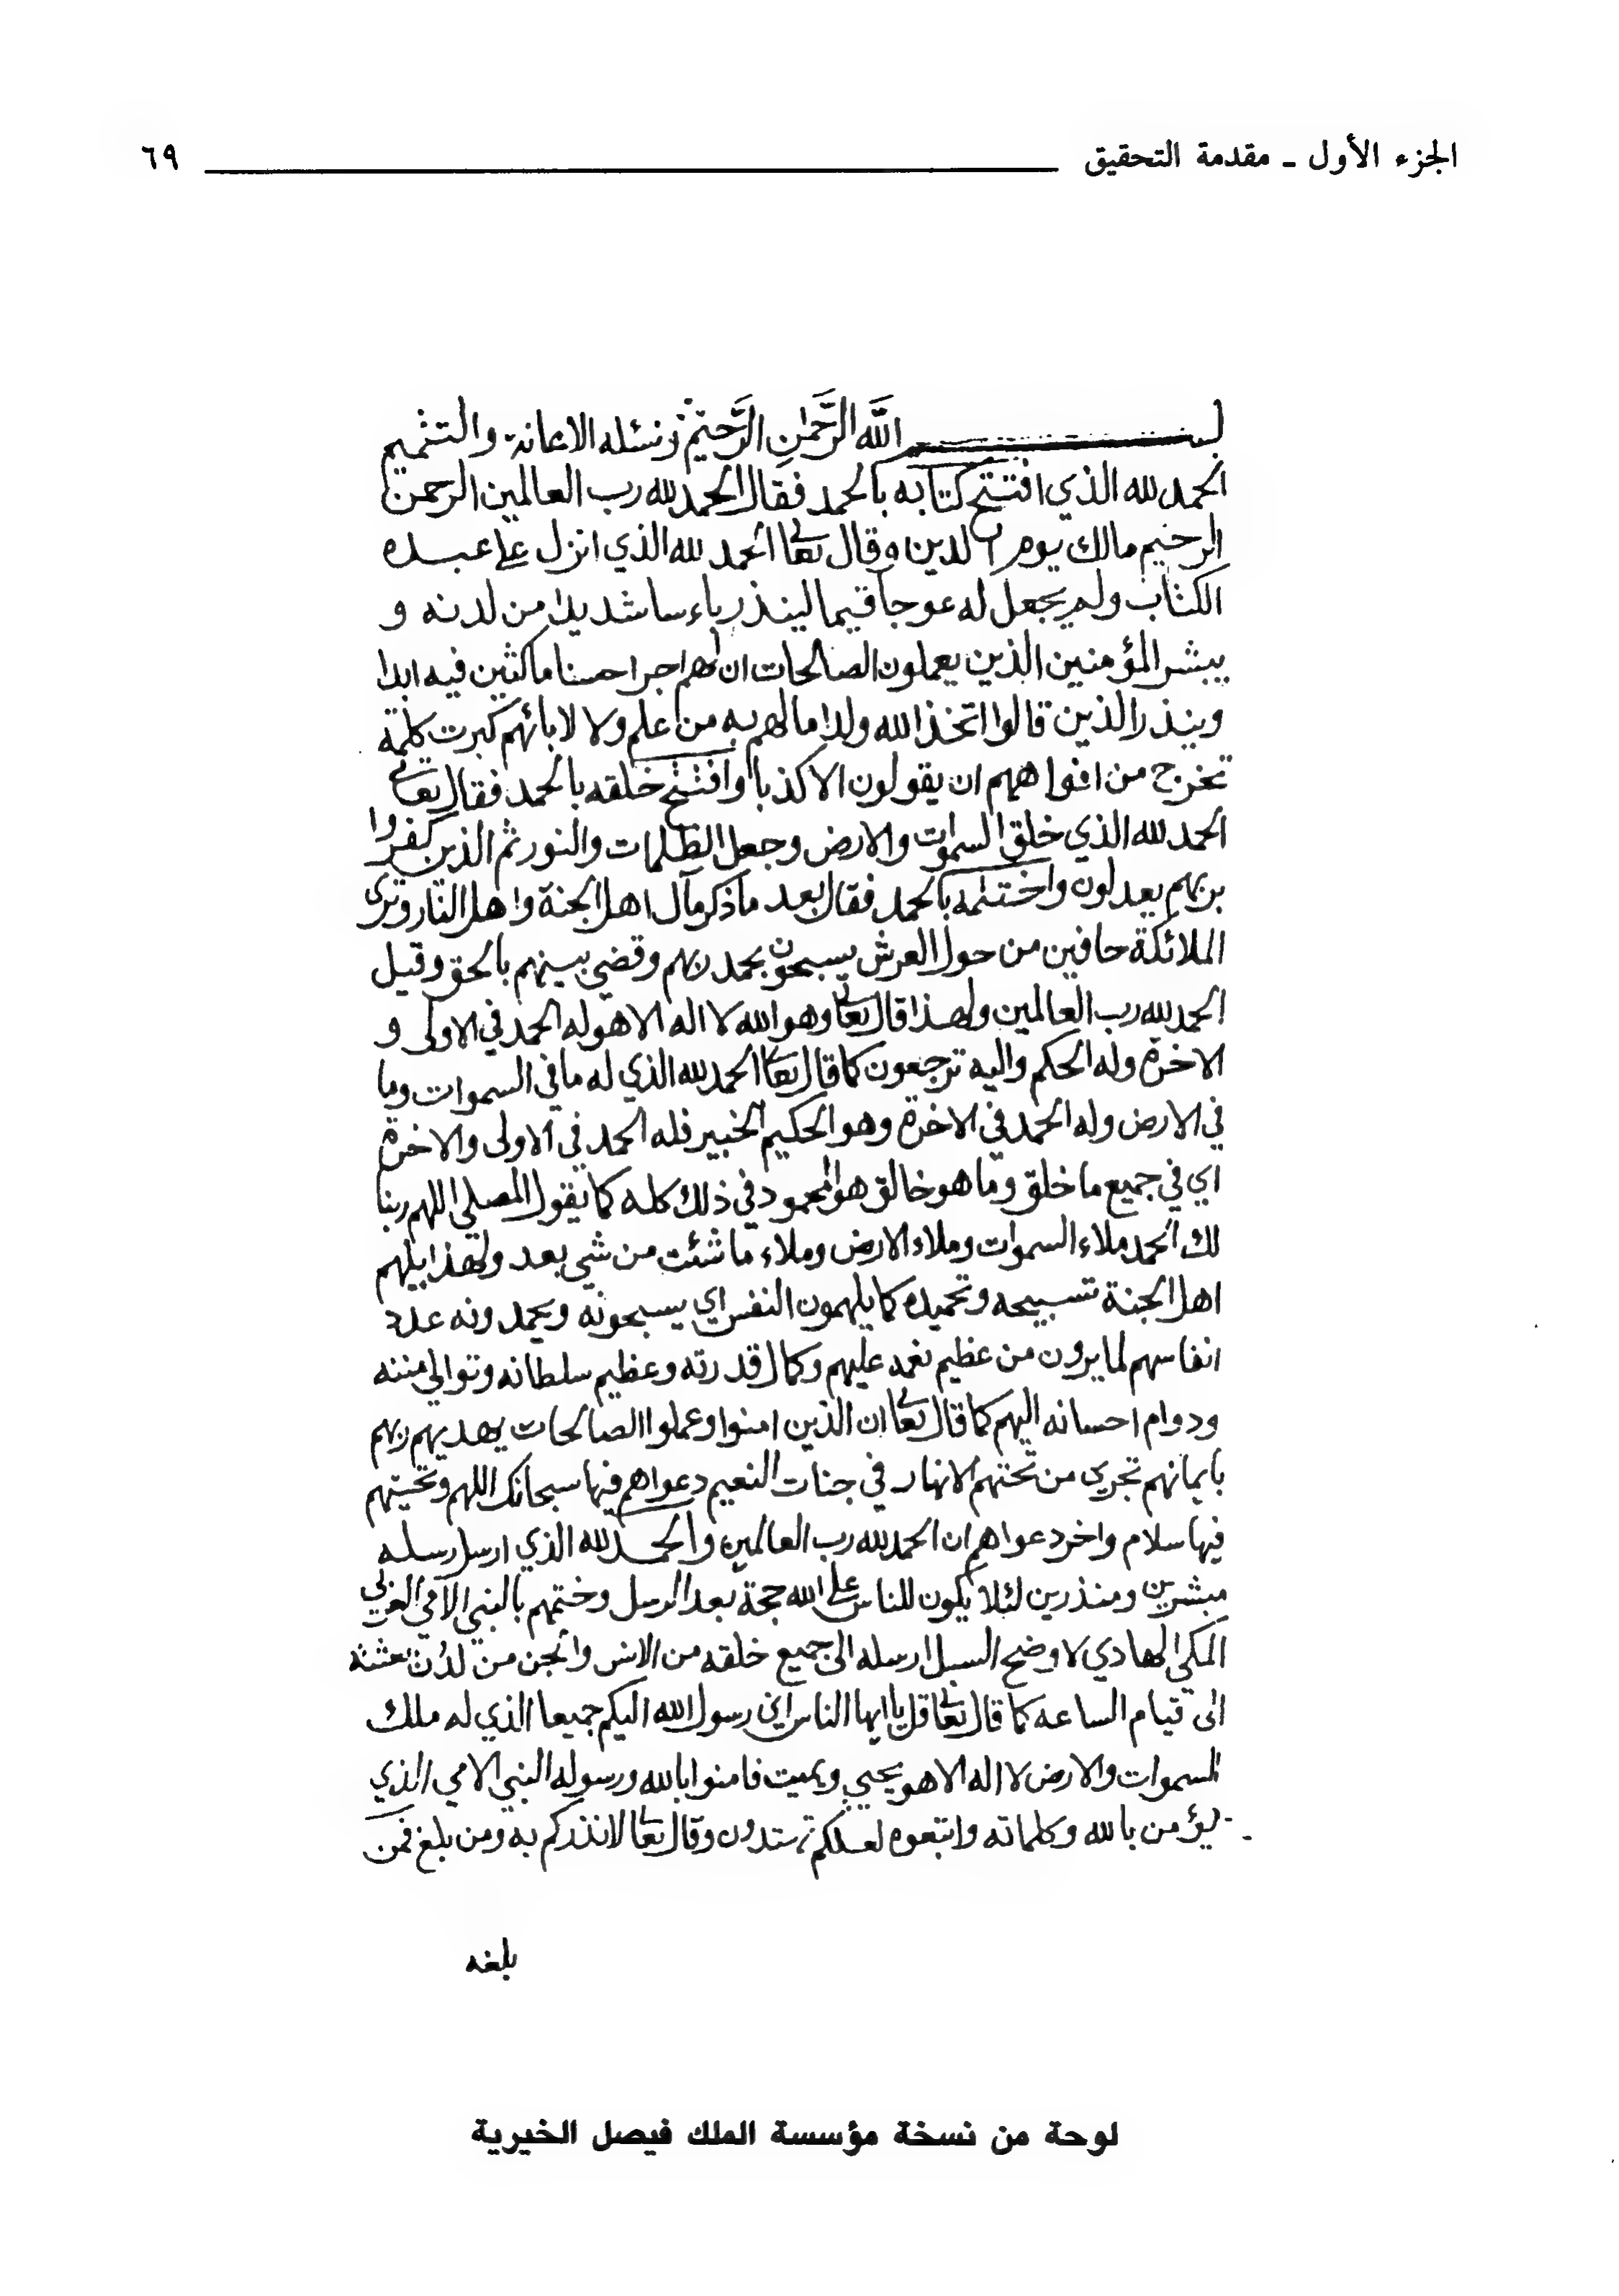 الجزء الأول ـ مقدمة التحقيق ٦٩
بسم الله الرَّحمٰنِ الرَّحيمِ ونسئله الاعانة والتتميم
الحمد لله الذي افتتح كتابه بالحمد فقال الحمد لله رب العالمين الرحمن
الرحيم مالك يوم الدين وقال تعالى الحمد لله الذي انزل على عبده
الكتاب ولم يجعل له عوجا قيما لينذر باءسا شديدا من لدنه و
يبشر المؤمنين الذين يعملون الصالحات ان لهم اجرا حسنا ماكثين فيه ابدا
وينذر الذين قالوا اتخذ الله ولدا مالهم به من علم ولا لابائهم كبرت كلمة
تخرج من افواههم ان يقولون الا كذبا وافتتح خلقه بالحمد فقال تعالى
الحمد لله الذي خلق السموات والارض وجعل الظلمات والنور ثم الذين كفروا
بربهم يعدلون واختتمه بالحمد فقال بعد ماذكر مآل اهل الجنة واهل النار وترى
الملائكة حافين من حول العرش يسبحون بحمد ربهم وقضي بينهم بالحق وقيل
الحمد لله رب العالمين ولهذا قال تعالى وهو الله لا اله الا هو له الحمد في الاولى و
الاخرة وله الحكم واليه ترجعون كما قال تعالى الحمد لله الذي له ما في السموات وما
في الارض وله الحمد في الاخرة وهو الحكيم الخبير فله الحمد في الاولى والاخرة
اي في جميع ما خلق وما هو خالق هو المحمود في ذلك كله كما يقول المصلي اللهم ربنا
لك الحمد ملاء السموات وملاء الارض وملاء ما شئت من شي بعد ولهذا يلهم
اهل الجنة تسبيحه وتحميده كما يلهمون النفس اي يسبحونه ويحمدونه عدد
انفاسهم لما يرون من عظيم نعمه عليهم وكمال قدرته وعظيم سلطانه وتوالي مننه
ودوام احسانه اليهم كما قال تعالى ان الذين امنوا وعملوا الصالحات يهديهم ربهم
بايمانهم تجري من تحتهم الانهار في جنات النعيم دعواهم فيها سبحانك اللهم وتحيتهم
فيها سلام واخر دعواهم ان الحمد لله رب العالمين والحمد لله الذي ارسل رسله
مبشرين ومنذرين لئلا يكون للناس على الله حجة بعد الرسل وختمهم بالنبي الامي العربي
المكي الهادي لاوضح السبل ارسله الى جميع خلقه من الانس والجن من لدن بعثته
الى قيام الساعه كما قال تعالى قل يا ايها الناس اني رسول الله اليكم جميعا الذي له ملك
السموات والارض لا اله الا هو يحيي ويميت فامنوا بالله ورسوله النبي الامي الذي
يؤمن بالله وكلماته واتبعوه لعلكم تهتدون وقال تعالى لانذركم به ومن بلغ فمن
بلغه
لوحة من نسخة مؤسسة الملك فيصل الخيرية